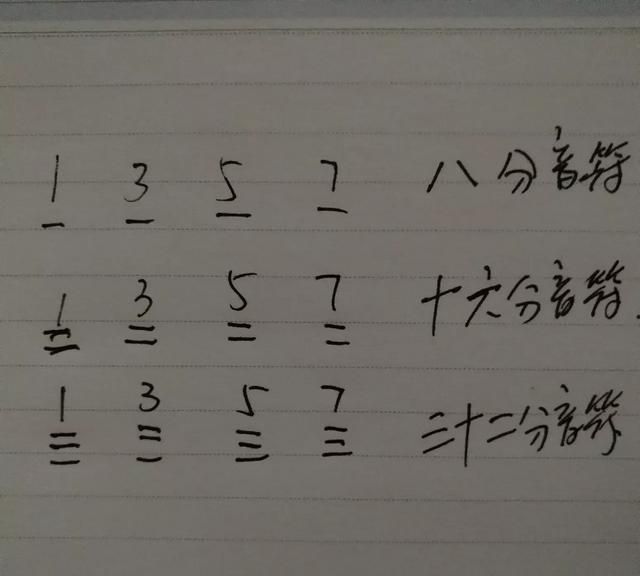 1 3 5 7 八分音符
1 3 5 7 十六分音符.
1 3 5 7 三十二分音符